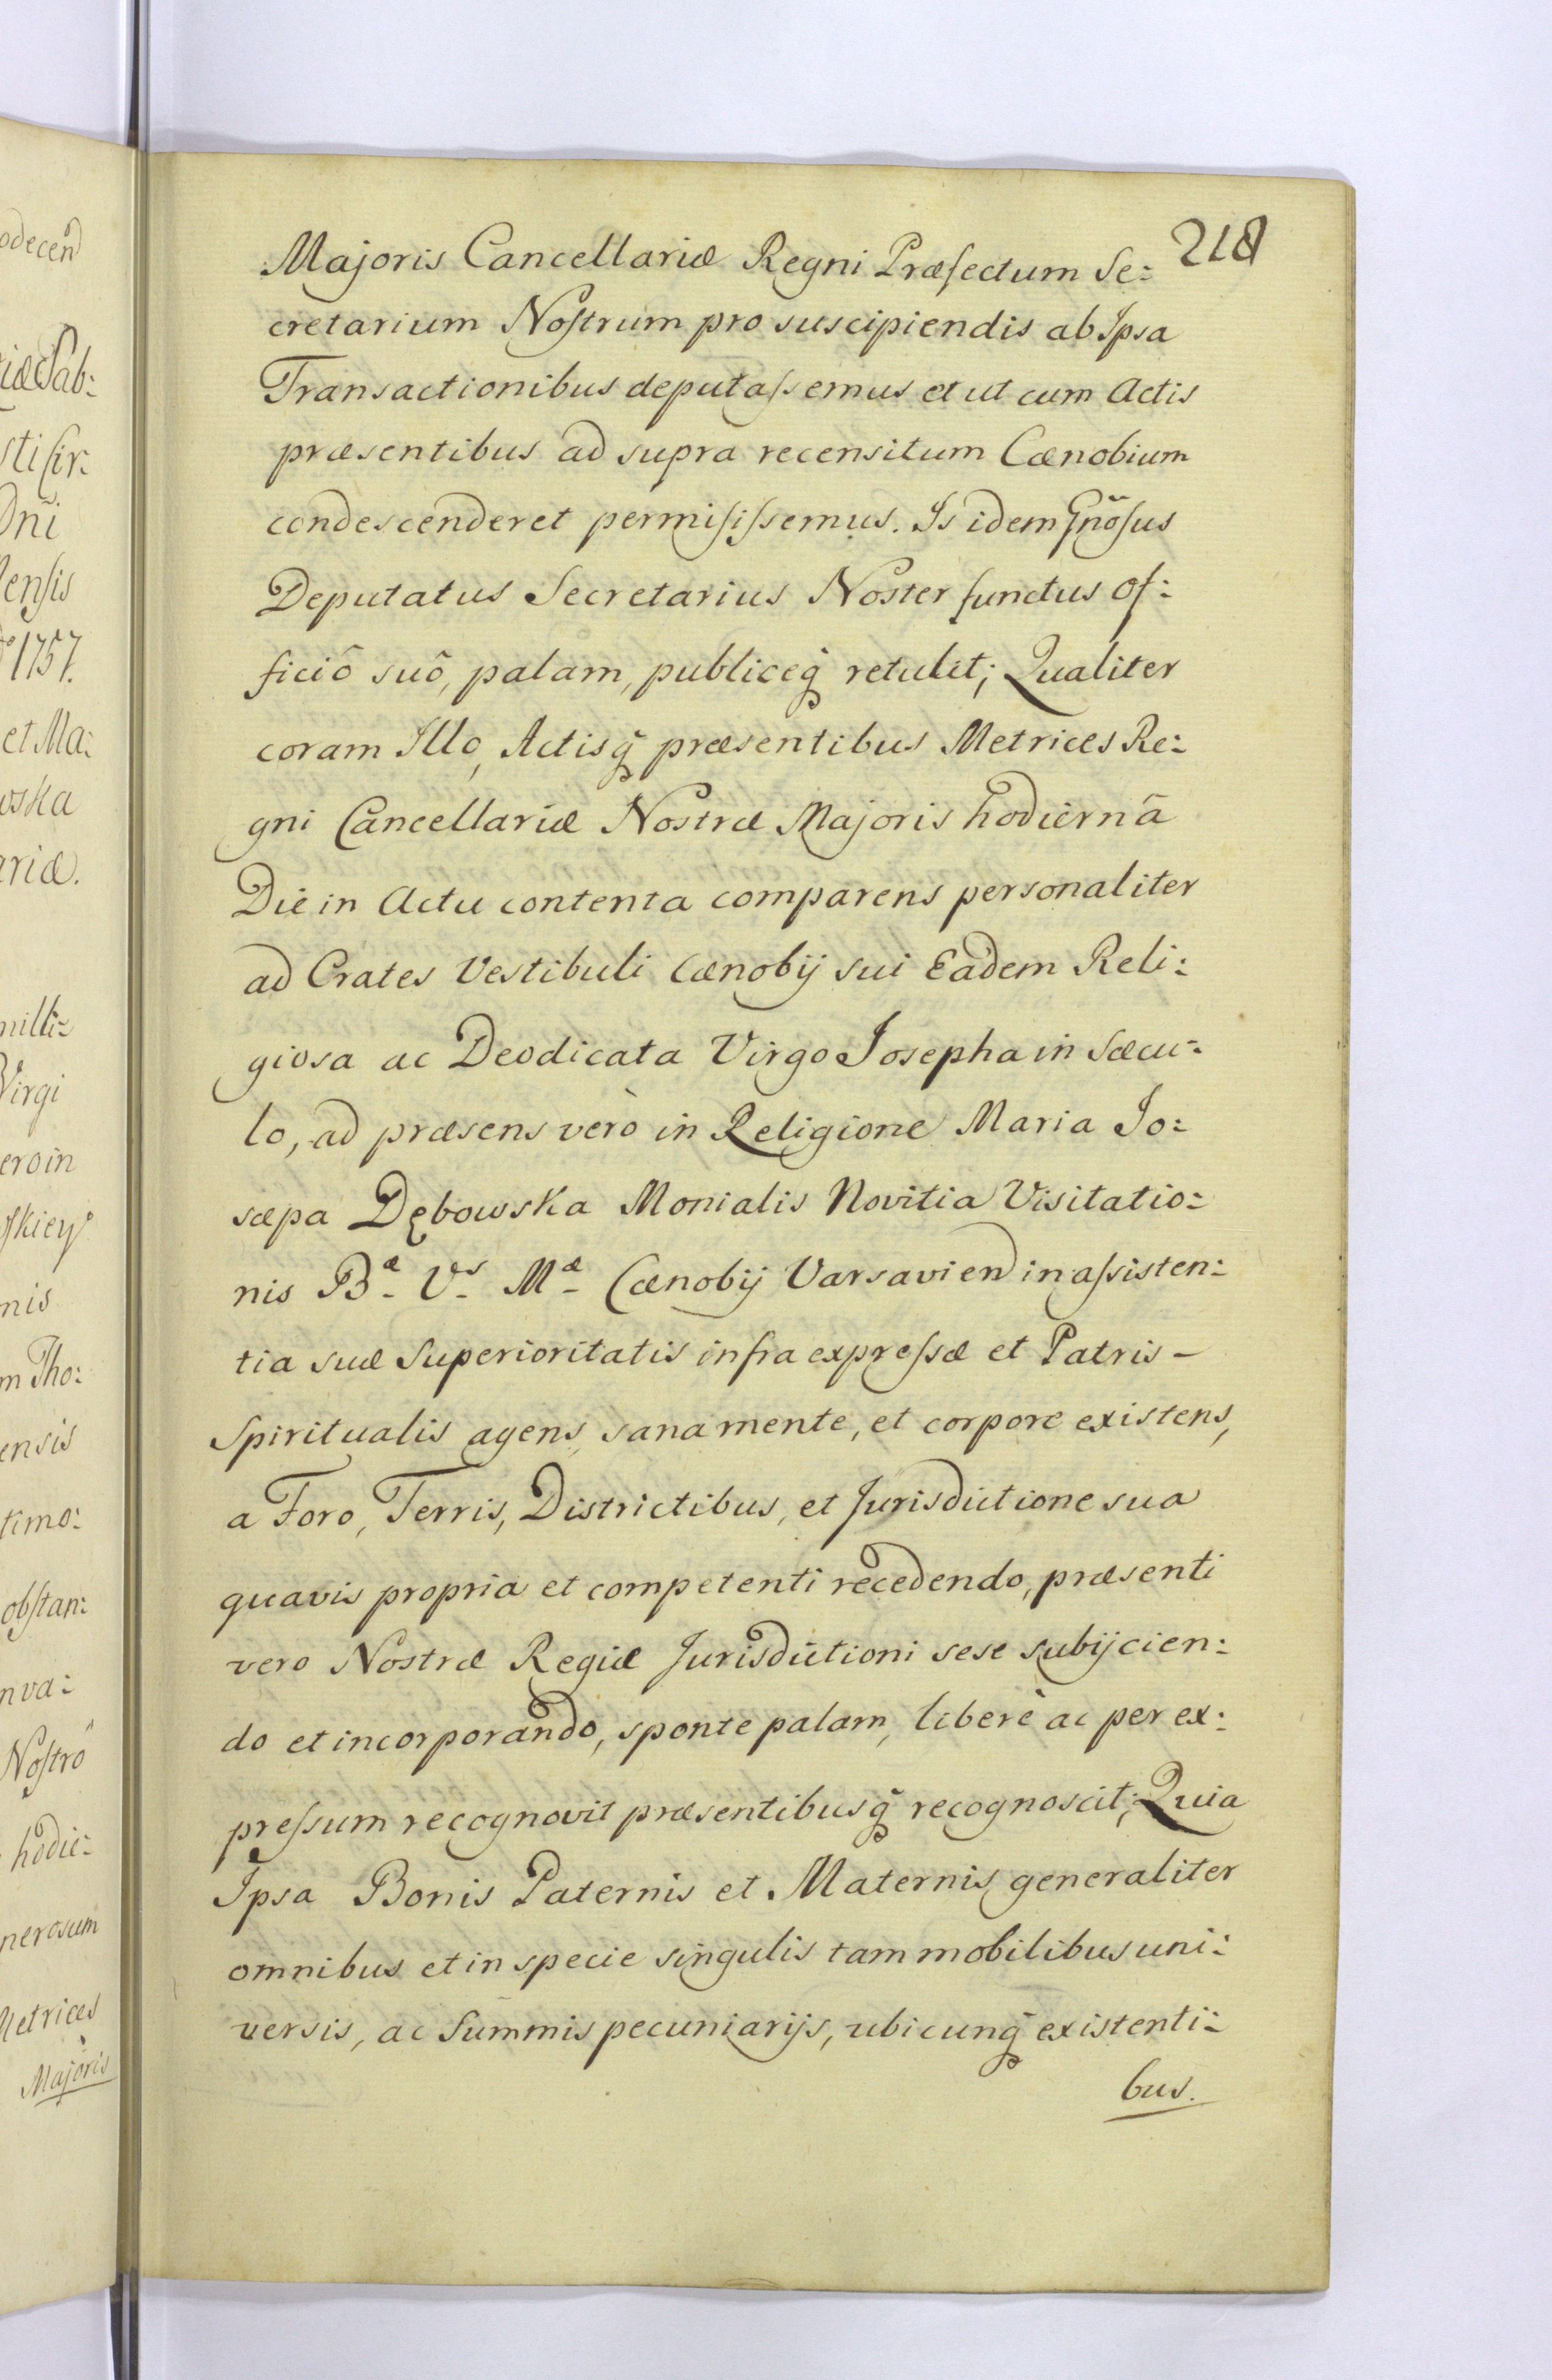 218
Majoris Cancellariæ Regni Præfectum Se:
cretarium Nostrum pro suscipiendis ab Ipsa
Transactionibus deputassemus et ut cum Actis
præsentibus ad supra recensitum Cænobium
condescenderet permisissemus. Is idem Gnõsus
Deputatus Secretarius Noster functus of:
ficiô suô, palam, publiceq̃ retulit; Qualiter
coram Illo, Actisq̃ præsentibus Metrices Re:
gni Cancellariæ Nostræ Majoris hodiernâ
Die in Actu contenta comparens personaliter
ad Crates Vestibuli Cænobij sui Eadem Reli:
giosa ac Deodicata Virgo Josepha in Sæcu:
lo, ad præsens verò in Religione Maria Jo:
sæpa Dębowska Monialis Novitia Visitatio:
nis Bæ Vs Mæ Cænobij Varsavien in assisten:
tia suæ Superioritatis infra expressæ et Patris -
Spiritualis agens, sana mente, et corpore existens,
a Foro, Terris, Districtibus, et Jurisdictione sua
quavis propria et competenti recedendo, præsenti
vero Nostræ Regiæ Jurisdictioni sese subijcien:
do et incorporando, sponte palam, liberè ac per ex:
pressum recognovit præsentibusq̃ recognoscit; Quia
Ipsa Bonis Paternis et Maternis generaliter
omnibus et in specie singulis tam mobilibus uni:
versis, ac Summis pecuniarijs, ubicunq̃ existenti:
bus.
odecen
Sab:
Dñi
ensis
1757.
et Ma:
wska
ariæ.
milli:
Virgi
ero in
skiey
nis
m Tho:
ensis
timo:
obstan:
nva:
Nostrô
hodie:
nerosum
Metrices
Majoris